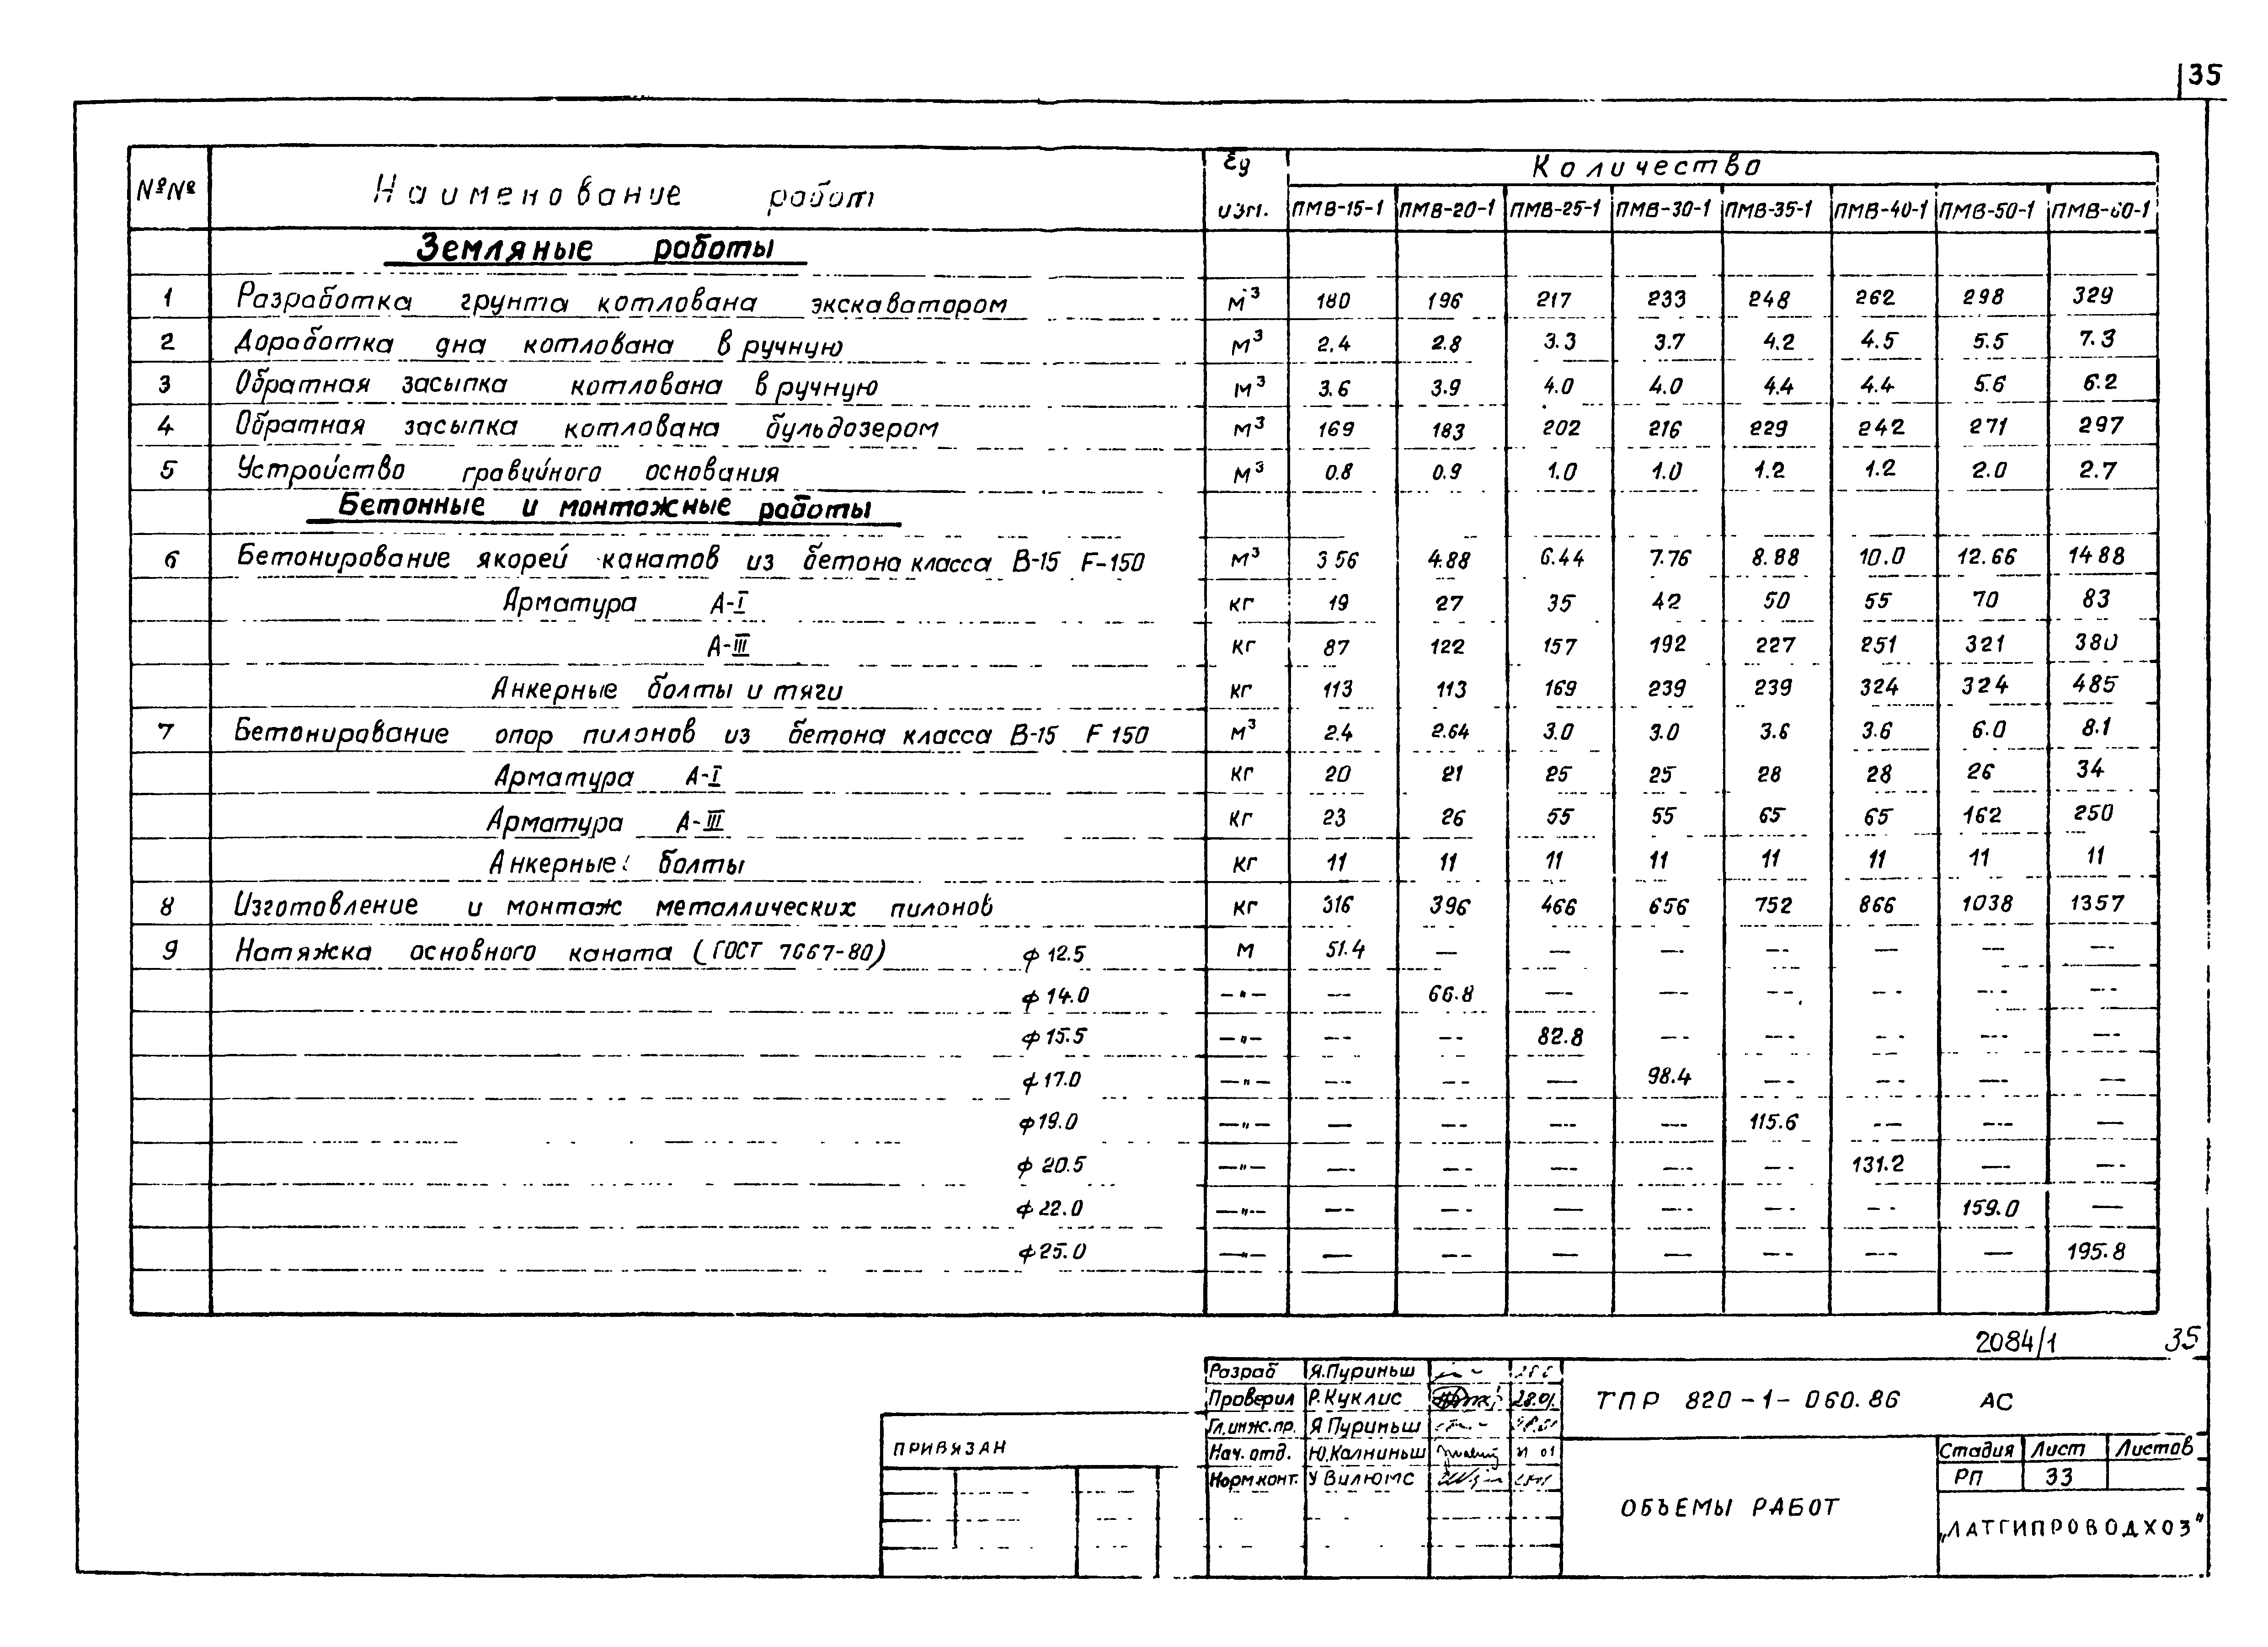 35
№№ Наименование работ Ед изм. Количество
ПМВ-15-1 ПМВ-20-1 ПМВ-25-1 ПМВ-30-1 ПМВ-35-1 ПМВ-40-1 ПМВ-50-1 ПМВ-60-1
Земляные работы
1 Разработка грунта котлована экскаватором м³ 180 196 217 233 248 262 298 329
2 Доработка дна котлована в ручную м³ 2.4 2.8 3.3 3.7 4.2 4.5 5.5 7.3
3 Обратная засыпка котлована в ручную м³ 3.6 3.9 4.0 4.0 4.4 4.4 5.6 6.2
4 Обратная засыпка котлована бульдозером м³ 169 183 202 216 229 242 271 297
5 Устройство гравийного основания м³ 0.8 0.9 1.0 1.0 1.2 1.2 2.0 2.7
Бетонные и монтажные работы
6 Бетонирование якорей канатов из бетона класса В-15 F-150 м³ 3 56 4.88 6.44 7.76 8.88 10.0 12.66 14 88
Арматура А-I кг 19 27 35 42 50 55 70 83
А-III кг 87 122 157 192 227 251 321 380
Анкерные болты и тяги кг 113 113 169 239 239 324 324 485
7 Бетонирование опор пилонов из бетона класса В-15 F 150 м³ 2.4 2.64 3.0 3.0 3.6 3.6 6.0 8.1
Арматура А-I кг 20 21 25 25 28 28 26 34
Арматура А-III кг 23 26 55 55 65 65 162 250
Анкерные болты кг 11 11 11 11 11 11 11 11
8 Изготовление и монтаж металлических пилонов кг 316 396 466 656 752 866 1038 1357
9 Натяжка основного каната (ГОСТ 7667-80) ф 12.5 м 51.4 — — — — — — —
ф 14.0 —"— — 66.8 — — — — — —
ф 15.5 —"— — — 82.8 — — — — —
ф 17.0 —"— — — — 98.4 — — — —
ф 19.0 —"— — — — — 115.6 — — —
ф 20.5 —"— — — — — — 131.2 — —
ф 22.0 —"— — — — — — — 159.0 —
ф 25.0 —"— — — — — — — — 195.8
2084/1 35
Разраб Я.Пуриньш
Проверил Р.Куклис 28.01
Гл.инж.пр. Я Пуриньш
Нач.отд. Ю.Калниньш
Норм.конт. У Вилюмс
ТПР 820-1-060.86 АС
ПРИВЯЗАН
ОБЪЕМЫ РАБОТ
Стадия Лист Листов
РП 33
„ЛАТГИПРОВОДХОЗ"